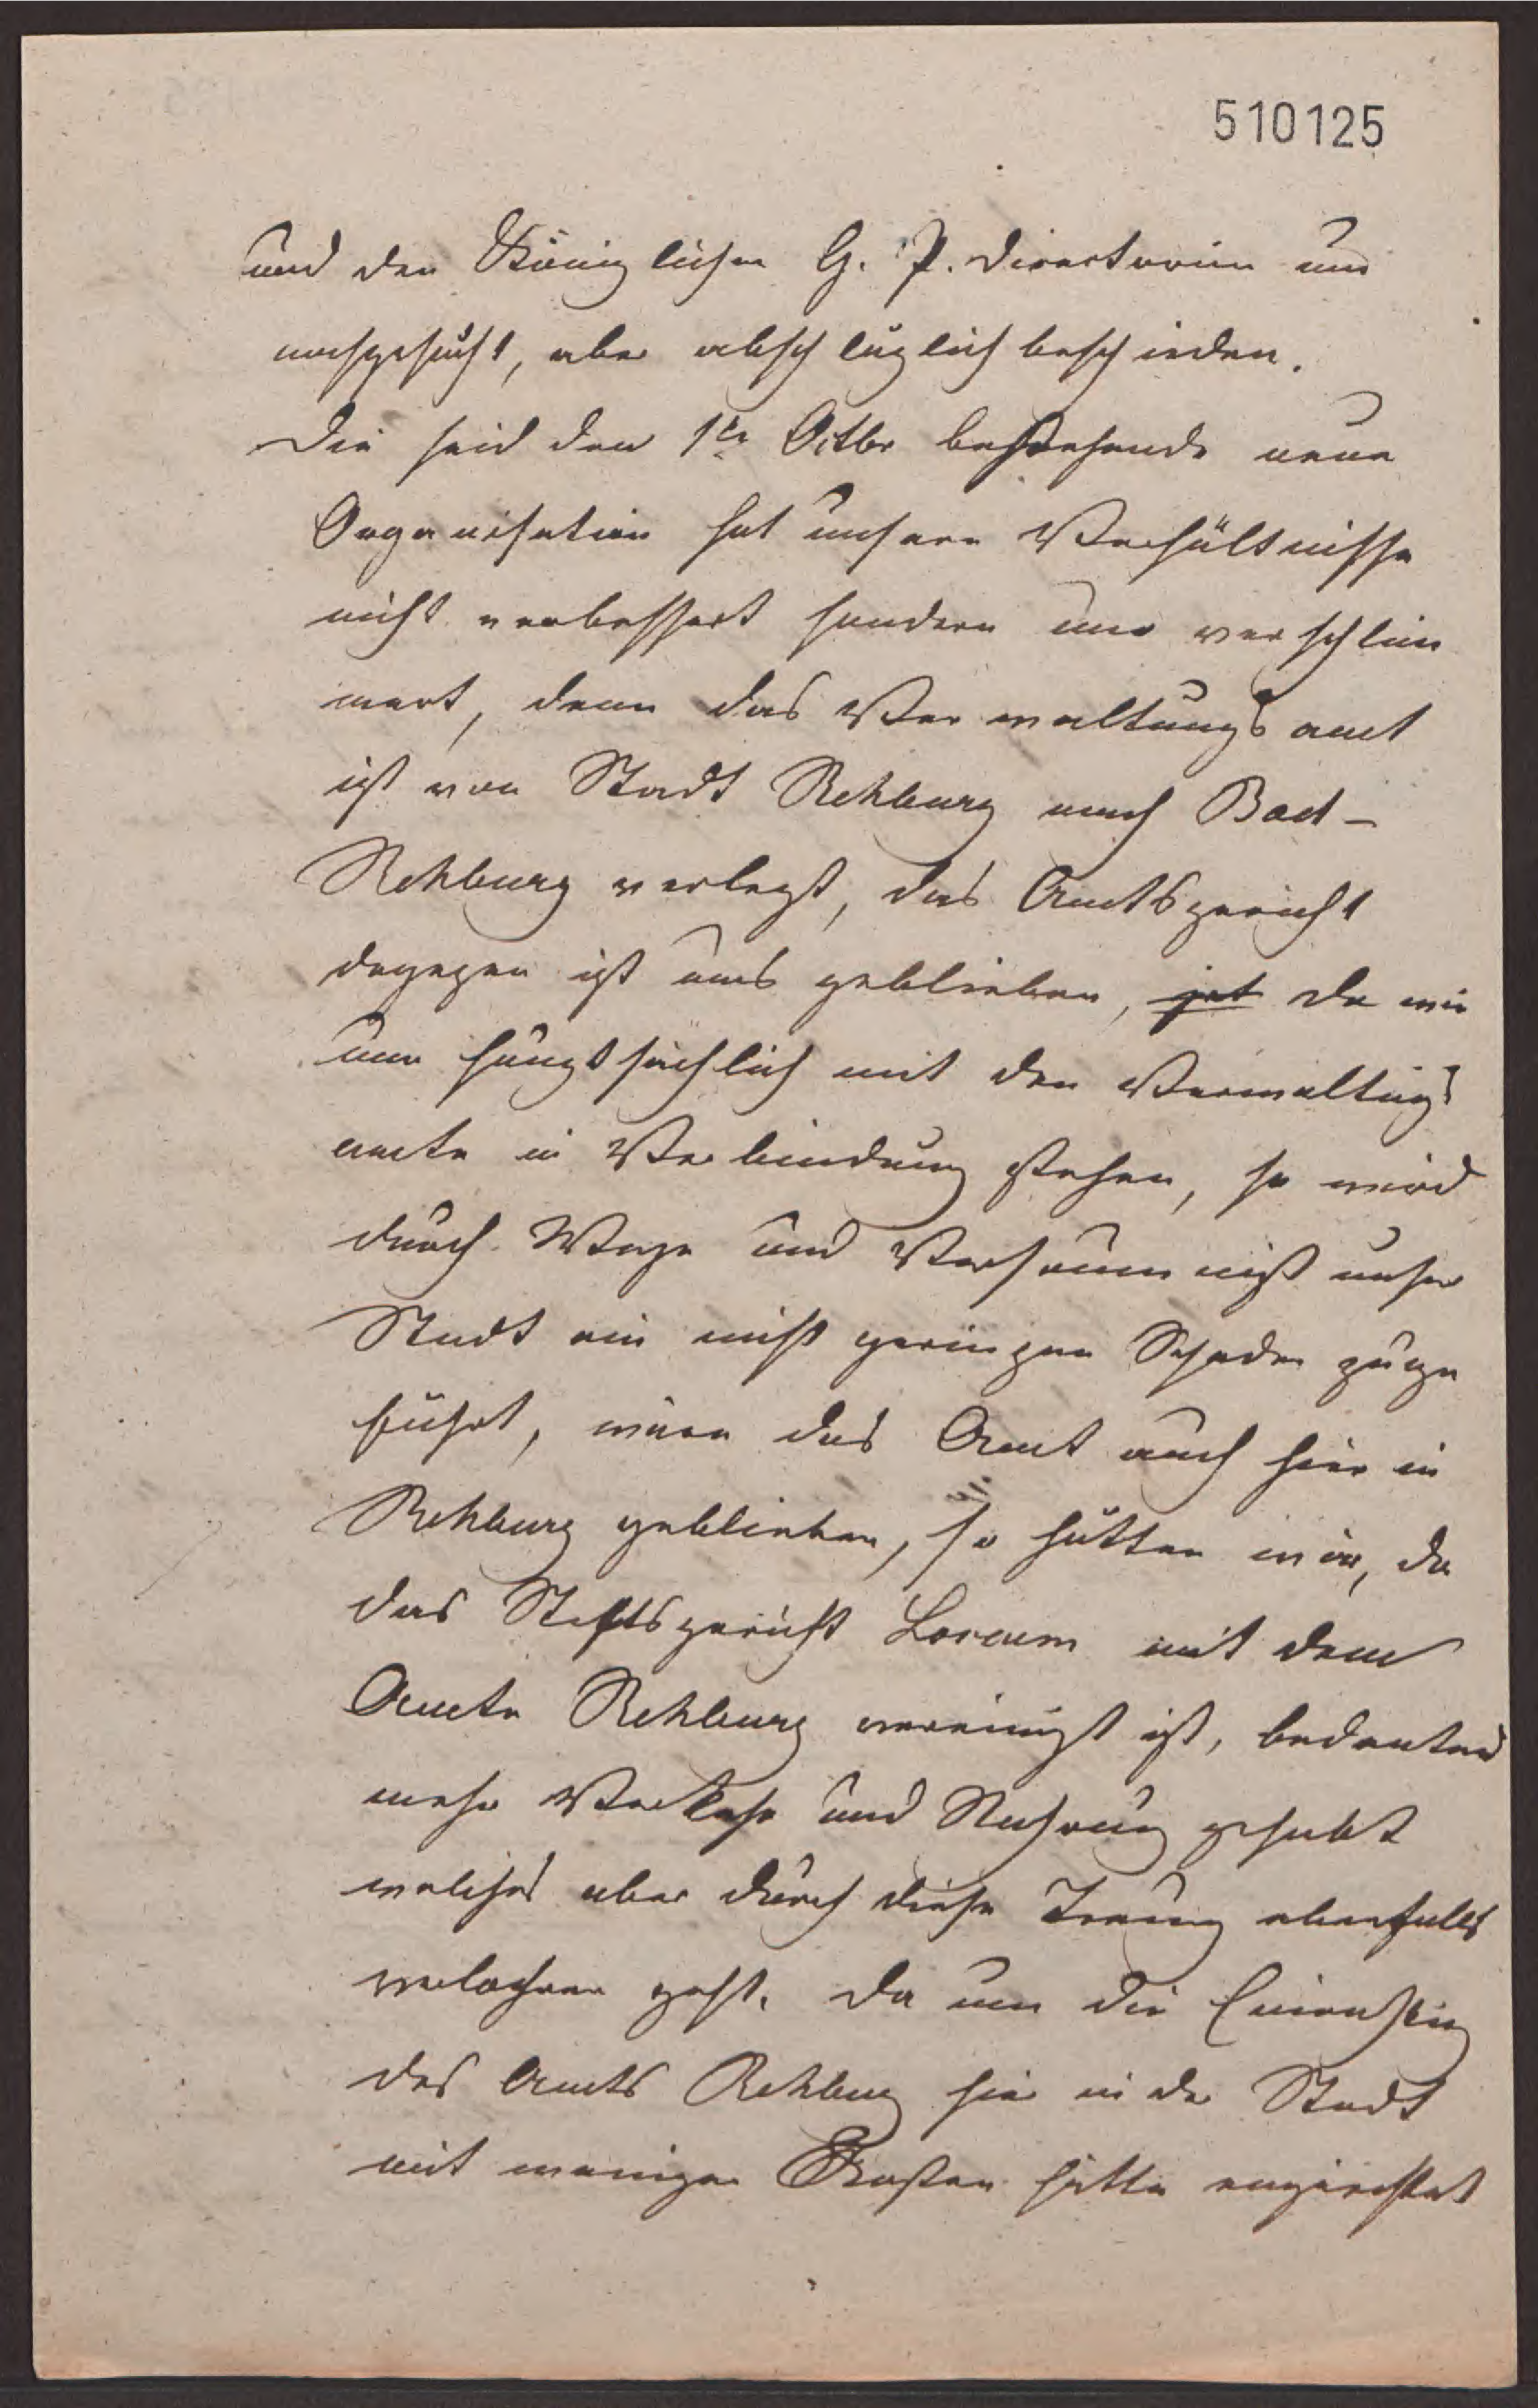 510125
und den Königlichen G. P. Directorium um
nachgesucht, aber abschläglich beschieden.
Die seid den 1ten Octbr bestehende neue
Organisation hat unsere Verhältnisse
nicht verbessert sondern nur verschlim
mert, denn das Verwaltungs amt
ist von Stadt Rehburg nach Bad-
Rehburg verlegt, das Amtsgericht
dagegen ist uns geblieben, jet da wir
nun hauptsächlich mit den Verwaltungs
amte in Verbindung stehen, so wird
durch Wege und Versäumniß unser
Stadt ein nicht geringen Schaden zuge
führt, wäre das Amt auch hier in
Rehburg geblieben, so hätten wir, da
das Stiftsgericht Loccum mit dem
Amte Rehburg vereinigt ist, bedeuten
mehr Verkehr und Nahrung gehabt
welches aber durch diese Trenung ebenfalls
verlohren geht. Da nun die Einrichtung
des Amts Rehburg hier in der Stadt
mit weniger Kosten hätte eingerichtet